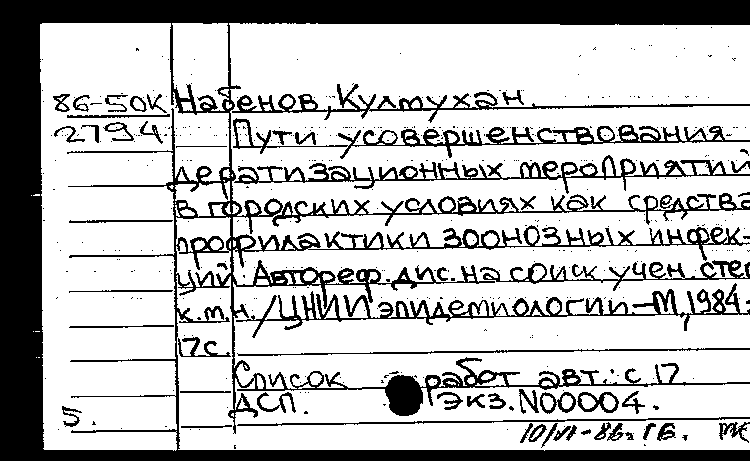 86-50К Набенов, Култухан.
2794 Пути усовершенствования
дератизационных мероприятий
в городских условиях как средства
профилактики зоонозных инфек-
ций: Автореф. дис. на соиск. учен. степ
к.м.н. / ЦНИИ эпидемиологии. - М., 1984.-
17с.
Список работ авт.: с. 17
ДСП. Экз. N00004.
5.
10/VI-86г. ГБ.